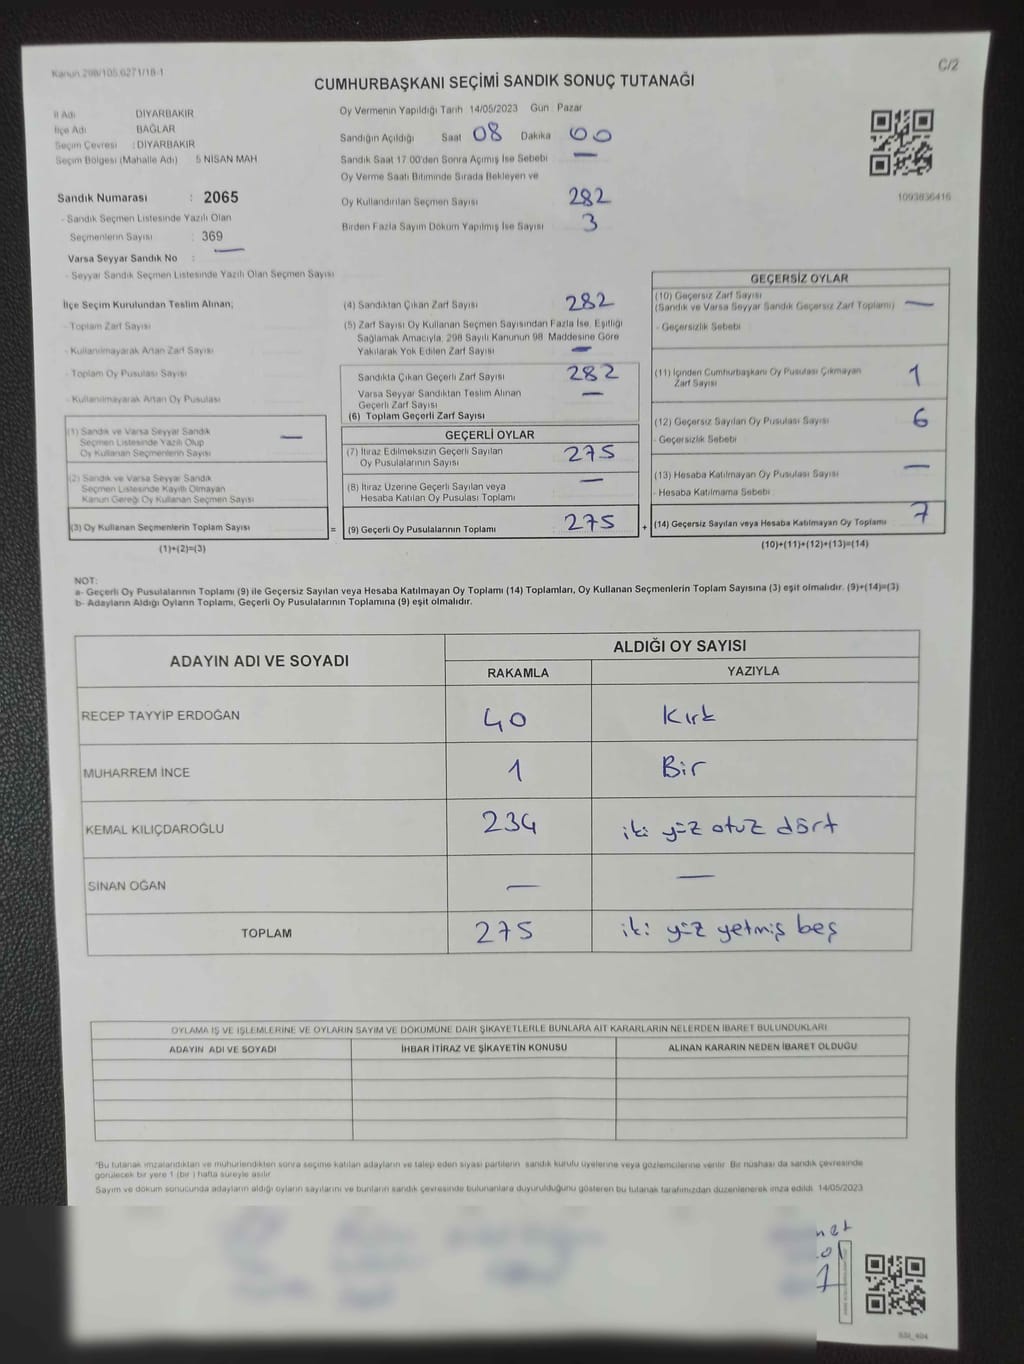 Kanun 298/105,6271/18-1
C/2
CUMHURBAŞKANI SEÇİMİ SANDIK SONUÇ TUTANAĞI
İl Adı DİYARBAKIR
İlçe Adı BAĞLAR
Seçim Çevresi : DİYARBAKIR
Seçim Bölgesi (Mahalle Adı) 5 NİSAN MAH
Sandık Numarası : 2065
- Sandık Seçmen Listesinde Yazılı Olan
Seçmenlerin Sayısı : 369
Varsa Seyyar Sandık No : —
- Seyyar Sandık Seçmen Listesinde Yazılı Olan Seçmen Sayısı
Oy Vermenin Yapıldığı Tarih 14/05/2023 Gün Pazar
Sandığın Açıldığı Saat 08 Dakika 00
Sandık Saat 17.00'den Sonra Açımış İse Sebebi —
Oy Verme Saati Bitiminde Sırada Bekleyen ve
Oy Kullandırılan Seçmen Sayısı 282
Birden Fazla Sayım Döküm Yapılmış İse Sayısı 3
1093836416
İlçe Seçim Kurulundan Teslim Alınan;
- Toplam Zarf Sayısı
- Kullanılmayarak Artan Zarf Sayısı
- Toplam Oy Pusulası Sayısı
- Kullanılmayarak Artan Oy Pusulası
(1) Sandık ve Varsa Seyyar Sandık
Seçmen Listesinde Yazılı Olup
Oy Kullanan Seçmenlerin Sayısı —
(2) Sandık ve Varsa Seyyar Sandık
Seçmen Listesinde Kayıtlı Olmayan
Kanun Gereği Oy Kullanan Seçmen Sayısı
(3) Oy Kullanan Seçmenlerin Toplam Sayısı
(1)+(2)=(3)
=
(4) Sandıktan Çıkan Zarf Sayısı 282
(5) Zarf Sayısı Oy Kullanan Seçmen Sayısından Fazla İse, Eşitliği
Sağlamak Amacıyla, 298 Sayılı Kanunun 98. Maddesine Göre
Yakılarak Yok Edilen Zarf Sayısı —
Sandıkta Çıkan Geçerli Zarf Sayısı 282
Varsa Seyyar Sandıktan Teslim Alınan
Geçerli Zarf Sayısı —
(6) Toplam Geçerli Zarf Sayısı
GEÇERLİ OYLAR
(7) İtiraz Edilmeksizin Geçerli Sayılan
Oy Pusulalarının Sayısı 275
(8) İtiraz Üzerine Geçerli Sayılan veya
Hesaba Katılan Oy Pusulası Toplamı —
(9) Geçerli Oy Pusulalarının Toplamı 275
+
GEÇERSİZ OYLAR
(10) Geçersiz Zarf Sayısı
(Sandık ve Varsa Seyyar Sandık Geçersiz Zarf Toplamı) —
- Geçersizlik Sebebi
(11) İçinden Cumhurbaşkanı Oy Pusulası Çıkmayan
Zarf Sayısı 1
(12) Geçersiz Sayılan Oy Pusulası Sayısı 6
- Geçersizlik Sebebi
(13) Hesaba Katılmayan Oy Pusulası Sayısı —
- Hesaba Katılmama Sebebi
(14) Geçersiz Sayılan veya Hesaba Katılmayan Oy Toplamı 7
(10)+(11)+(12)+(13)=(14)
NOT:
a- Geçerli Oy Pusulalarının Toplamı (9) ile Geçersiz Sayılan veya Hesaba Katılmayan Oy Toplamı (14) Toplamları, Oy Kullanan Seçmenlerin Toplam Sayısına (3) eşit olmalıdır. (9)+(14)=(3)
b- Adayların Aldığı Oyların Toplamı, Geçerli Oy Pusulalarının Toplamına (9) eşit olmalıdır.
ADAYIN ADI VE SOYADI ALDIĞI OY SAYISI
RAKAMLA YAZIYLA
RECEP TAYYİP ERDOĞAN 40 Kırk
MUHARREM İNCE 1 Bir
KEMAL KILIÇDAROĞLU 234 iki yüz otuz dört
SİNAN OĞAN — —
TOPLAM 275 iki yüz yetmiş beş
OYLAMA İŞ VE İŞLEMLERİNE VE OYLARIN SAYIM VE DÖKÜMÜNE DAİR ŞİKAYETLERLE BUNLARA AİT KARARLARIN NELERDEN İBARET BULUNDUKLARI
ADAYIN ADI VE SOYADI İHBAR İTİRAZ VE ŞİKAYETİN KONUSU ALINAN KARARIN NEDEN İBARET OLDUĞU
*Bu tutanak imzalandıktan ve mühürlendikten sonra seçime katılan adayların ve talep eden siyasi partilerin sandık kurulu üyelerine veya gözlemcilerine verilir. Bir nüshası da sandık çevresinde
görülecek bir yere 1 (bir ) hafta süreyle asılır.
Sayım ve döküm sonucunda adayların aldığı oyların sayılarını ve bunların sandık çevresinde bulunanlara duyurulduğunu gösteren bu tutanak tarafımızdan düzenlenerek imza edildi. 14/05/2023